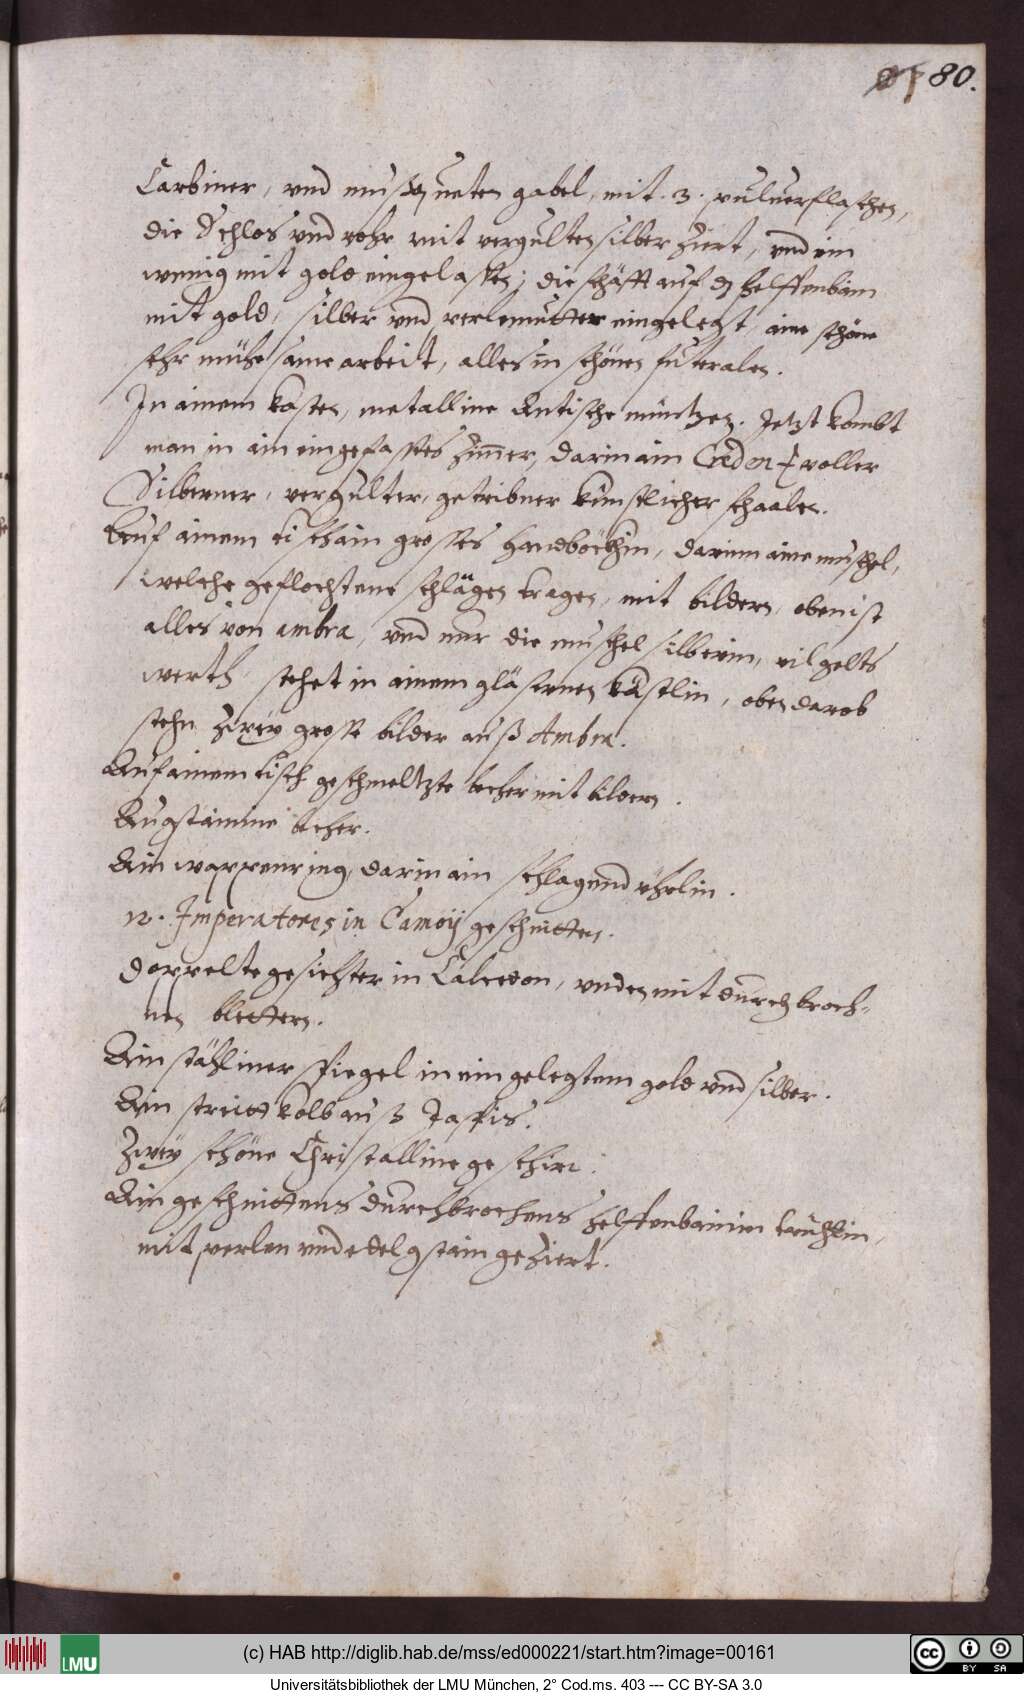 80.
Carbiner, vnd mußqueten gabel, mit .3. puluerflaschen,
die Schlos vnd rohr mit vergulten silber ziert, vnd ein
wenig mit gold eingelaßen; die schäfft auß helffenbain
mit gold, silber vnd perlemutter eingelegt, aine schöne
sehr mühesame arbeit, alles in schönen futeralen.
In ainem kasten, metalline Antische müntzen. Jetzt kombt
man in ain eingefasstes zimmer, darin ain Credentz voller
Silberner, vergulter, getribner künstlicher schaalen.
Auf ainem tisch ain grosses handböckhin, darinn aine muschel,
welche geflochtene schlangen tragen, mit bildern, oben ist
alles von ambra, vnd nur die muschel silberin, vil gelts
werth, stehet in ainem gläsernen kästlin, oben darob
stehn zwey grosse bilder auß Ambra.
Auf ainem tisch geschmeltzte becher mit bildern.
Augstainine becher.
Ain wappenring, darin ain schlagend ührlin.
12. Imperatores in Camoÿ geschnitten.
Doppelte gesichter in Calcedon, vnden mit durchbroch-
nen blettern.
Ain stähliner spiegel in eingelegtem gold vnd silber.
Ain streitt kolb auß Jaspis.
Zwey schöne Christalline geschirr.
Ain geschnittens durchbrochens helffenbainin trühlin,
mit perlen vnd edelgstain geziert.
LMU
(c) HAB http://diglib.hab.de/mss/ed000221/start.htm?image=00161
cc BY SA
Universitätsbibliothek der LMU München, 2° Cod.ms. 403 --- CC BY-SA 3.0